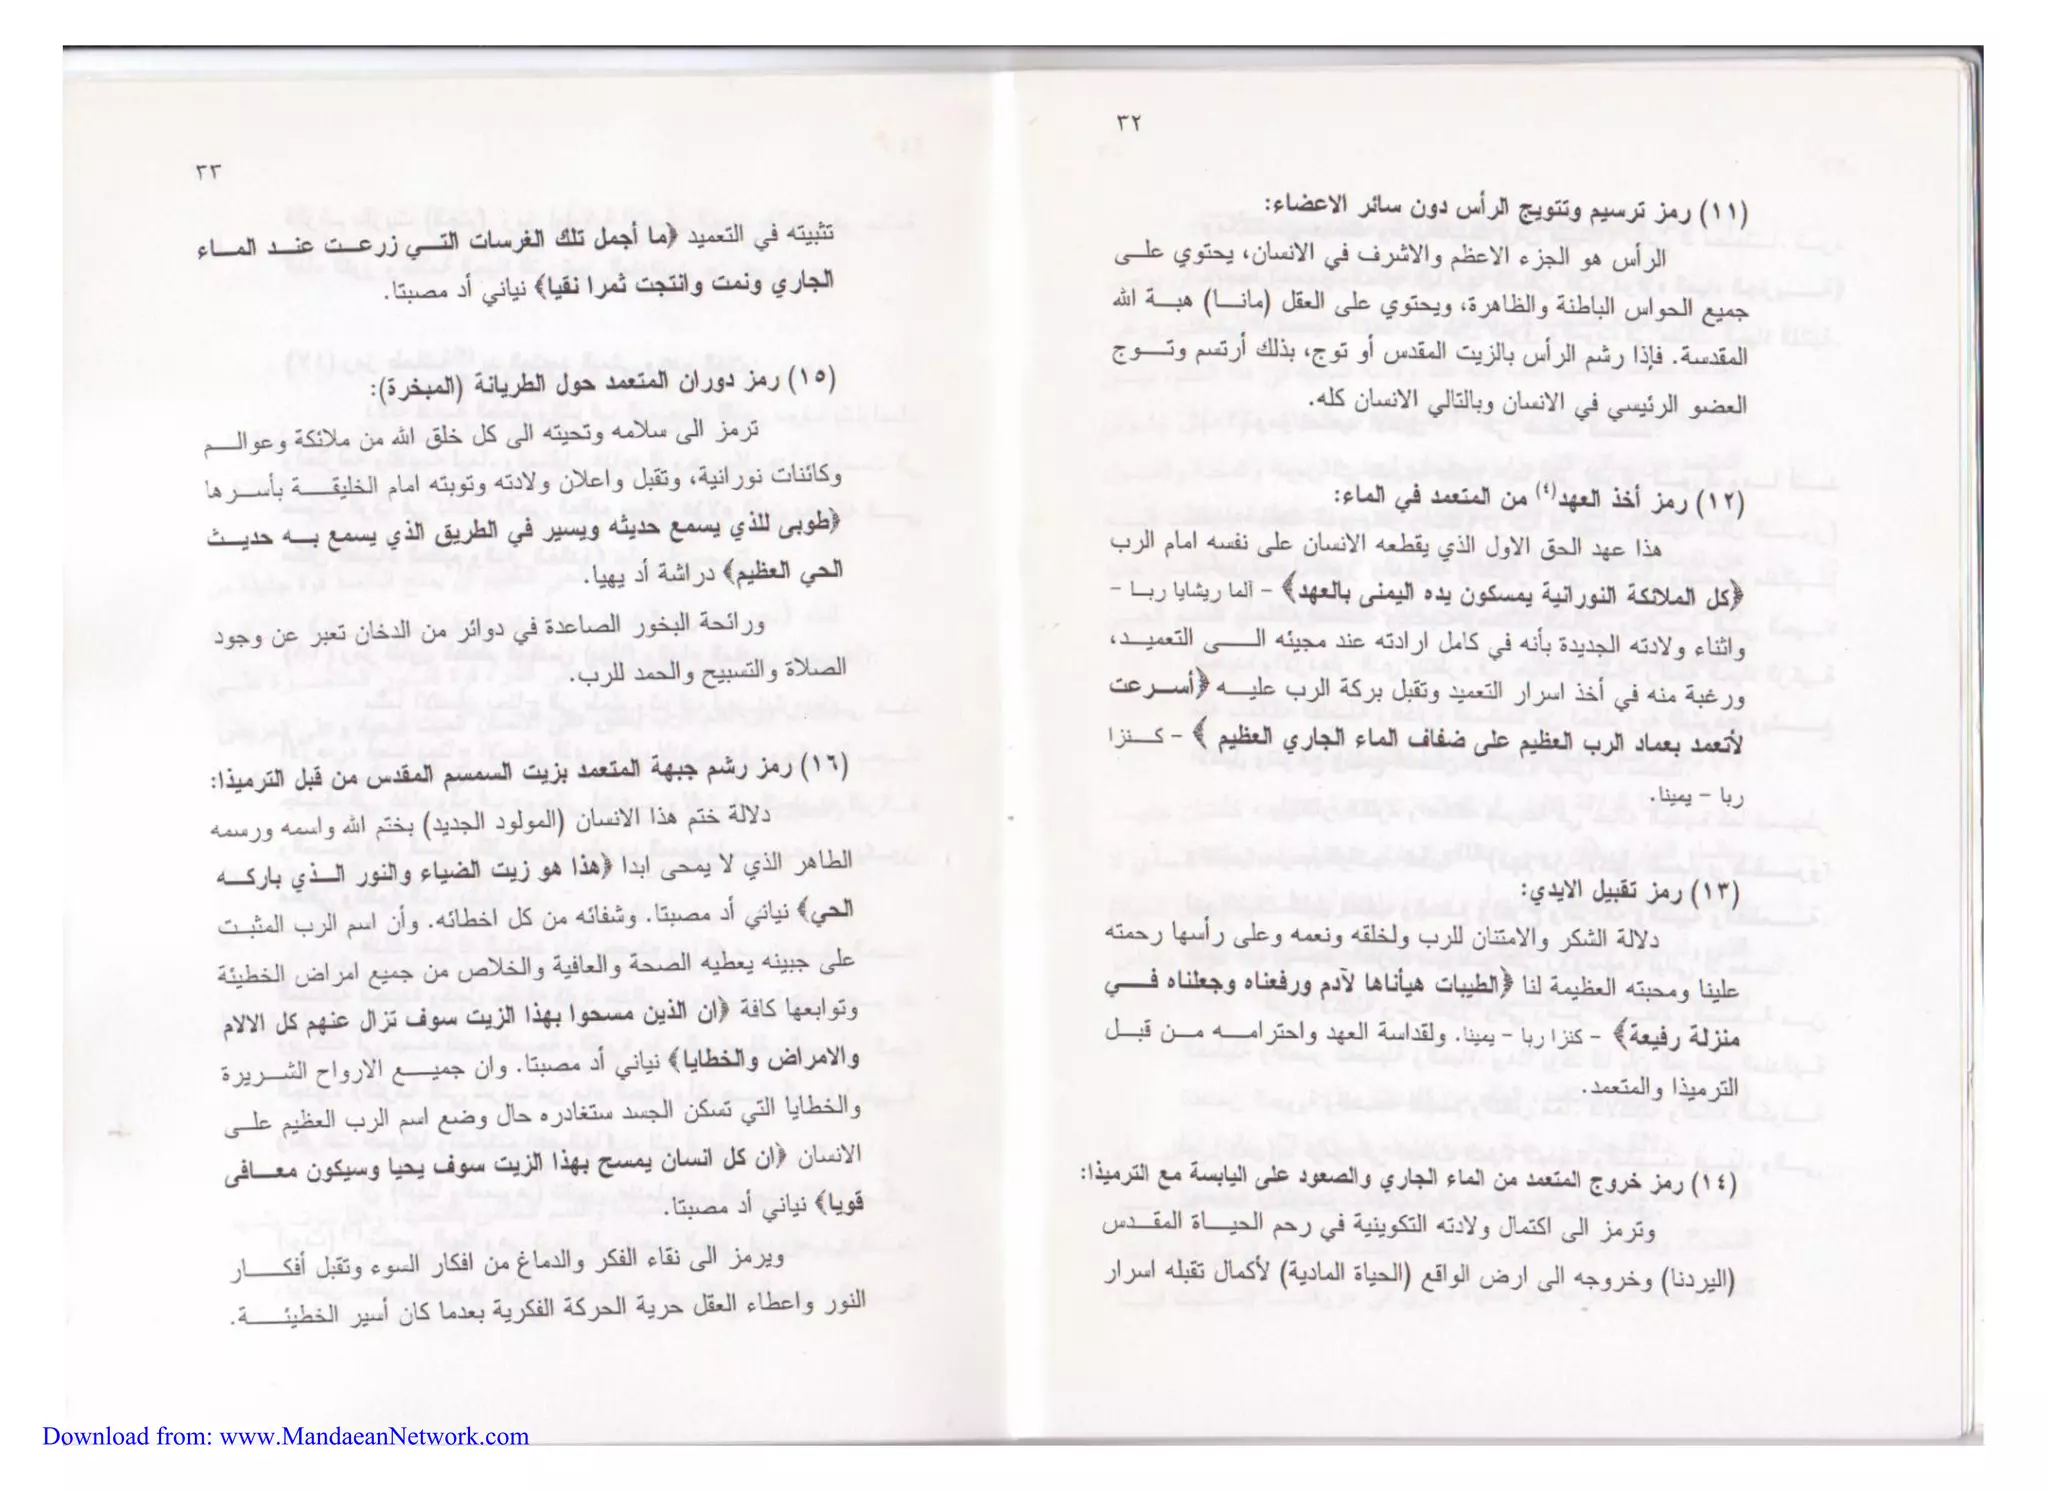 ٣٢
(١١) رمز ترسيم وتتويج الرأس دون سائر الاعضاء:
الرأس هو الجزء الاعظم والاشرف في الانسان، يحتوي على
جميع الحواس الباطنة والظاهرة، ويحتوي على العقل (مانا) هبة الله
المقدسة. فإذا رشم الرأس بالزيت المقدس أو توج، بذلك أرتسم وتوج
العضو الرئيسي في الانسان وبالتالي الانسان كله.
(١٢) رمز أخذ العهد(٤) من المتعمد في الماء:
هذا عهد الحق الاول الذي يقطعه الانسان على نفسه امام الرب
﴿كل الملائكة النورانية يمسكون يده اليمنى بالعهد﴾ - الما ريشايا ربا -
واثناء ولادته الجديدة بانه في كامل ارادته عند مجيئه الى التعميد،
ورغبة منه في أخذ اسرار التعميد وتقبل بركة الرب عليه ﴿أسرعت
لأتعمد بعماد الرب العظيم على ضفاف الماء الجاري العظيم ﴾ - كنزا
ربا - يمينا.
(١٣) رمز تقبيل الايدي:
دلالة الشكر والامتنان للرب ولخلقه ونعمه وعلى رأسها رحمته
علينا ومحبته العظيمة لنا ﴿الطيبات هيأناها لآدم ورفعناه وجعلناه في
منزلة رفيعة﴾ - كنزا ربا - يمينا. ولقداسة العهد واحترامه من قبل
الترميذا والمتعمد.
(١٤) رمز خروج المتعمد من الماء الجاري والصعود على اليابسة مع الترميذا:
وترمز الى اكتمال ولادته التكوينية في رحم الحياة المقدس
(اليردنا) وخروجه الى ارض الواقع (الحياة المادية) لأكمال تقبله اسرار
٣٣
تثبيته في التعميد ﴿ما أجمل تلك الغرسات التي زرعت عند الماء
الجاري ونمت وانتجت ثمرا نقيا﴾ نياني أد مصبتا.
(١٥) رمز دوران المتعمد حول الطريانة (المبخرة):
ترمز الى سلامه وتحيته الى كل خلق الله من ملائكة وعوالم
وكائنات نورانية، وتقبل واعلان ولادته وتوبته امام الخليقة بأسرها
﴿طوبى للذي يسمع حديثه ويسير في الطريق الذي يسمع به حديث
الحي العظيم﴾ دراشة أد يهيا.
ورائحة البخور الصاعدة في دوائر من الدخان تعبر عن وجود
الصلاة والتسبيح والحمد للرب.
(١٦) رمز رشم جبهة المتعمد بزيت السمسم المقدس من قبل الترميذا:
دلالة ختم هذا الانسان (المولود الجديد) بختم الله واسمه ورسمه
الطاهر الذي لا يمحى ابدا ﴿هذا هو زيت الضياء والنور الذي باركه
الحي﴾ نياني أد مصبتا. وشفائه من كل اخطائه. وأن اسم الرب المثبت
على جبينه يعطيه الصحة والعافية والخلاص من جميع امراض الخطيئة
وتوابعها كافة ﴿ان الذين مسحوا بهذا الزيت سوف تزال عنهم كل الالام
والامراض والخطايا﴾ نياني أد مصبتا. وان جميع الارواح الشريرة
والخطايا التي تسكن الجسد ستغادره حال وضع اسم الرب العظيم على
الانسان ﴿ان كل انسان يمسح بهذا الزيت سوف يحيا وسيكون معافى
قويا﴾ نياني أد مصبتا.
ويرمز الى نقاء الفكر والدماغ من افكار السوء وتقبل أفكار
النور واعطاء العقل حرية الحركة الفكرية بعدما كان أسير الخطيئة.
Download from: www.MandaeanNetwork.com